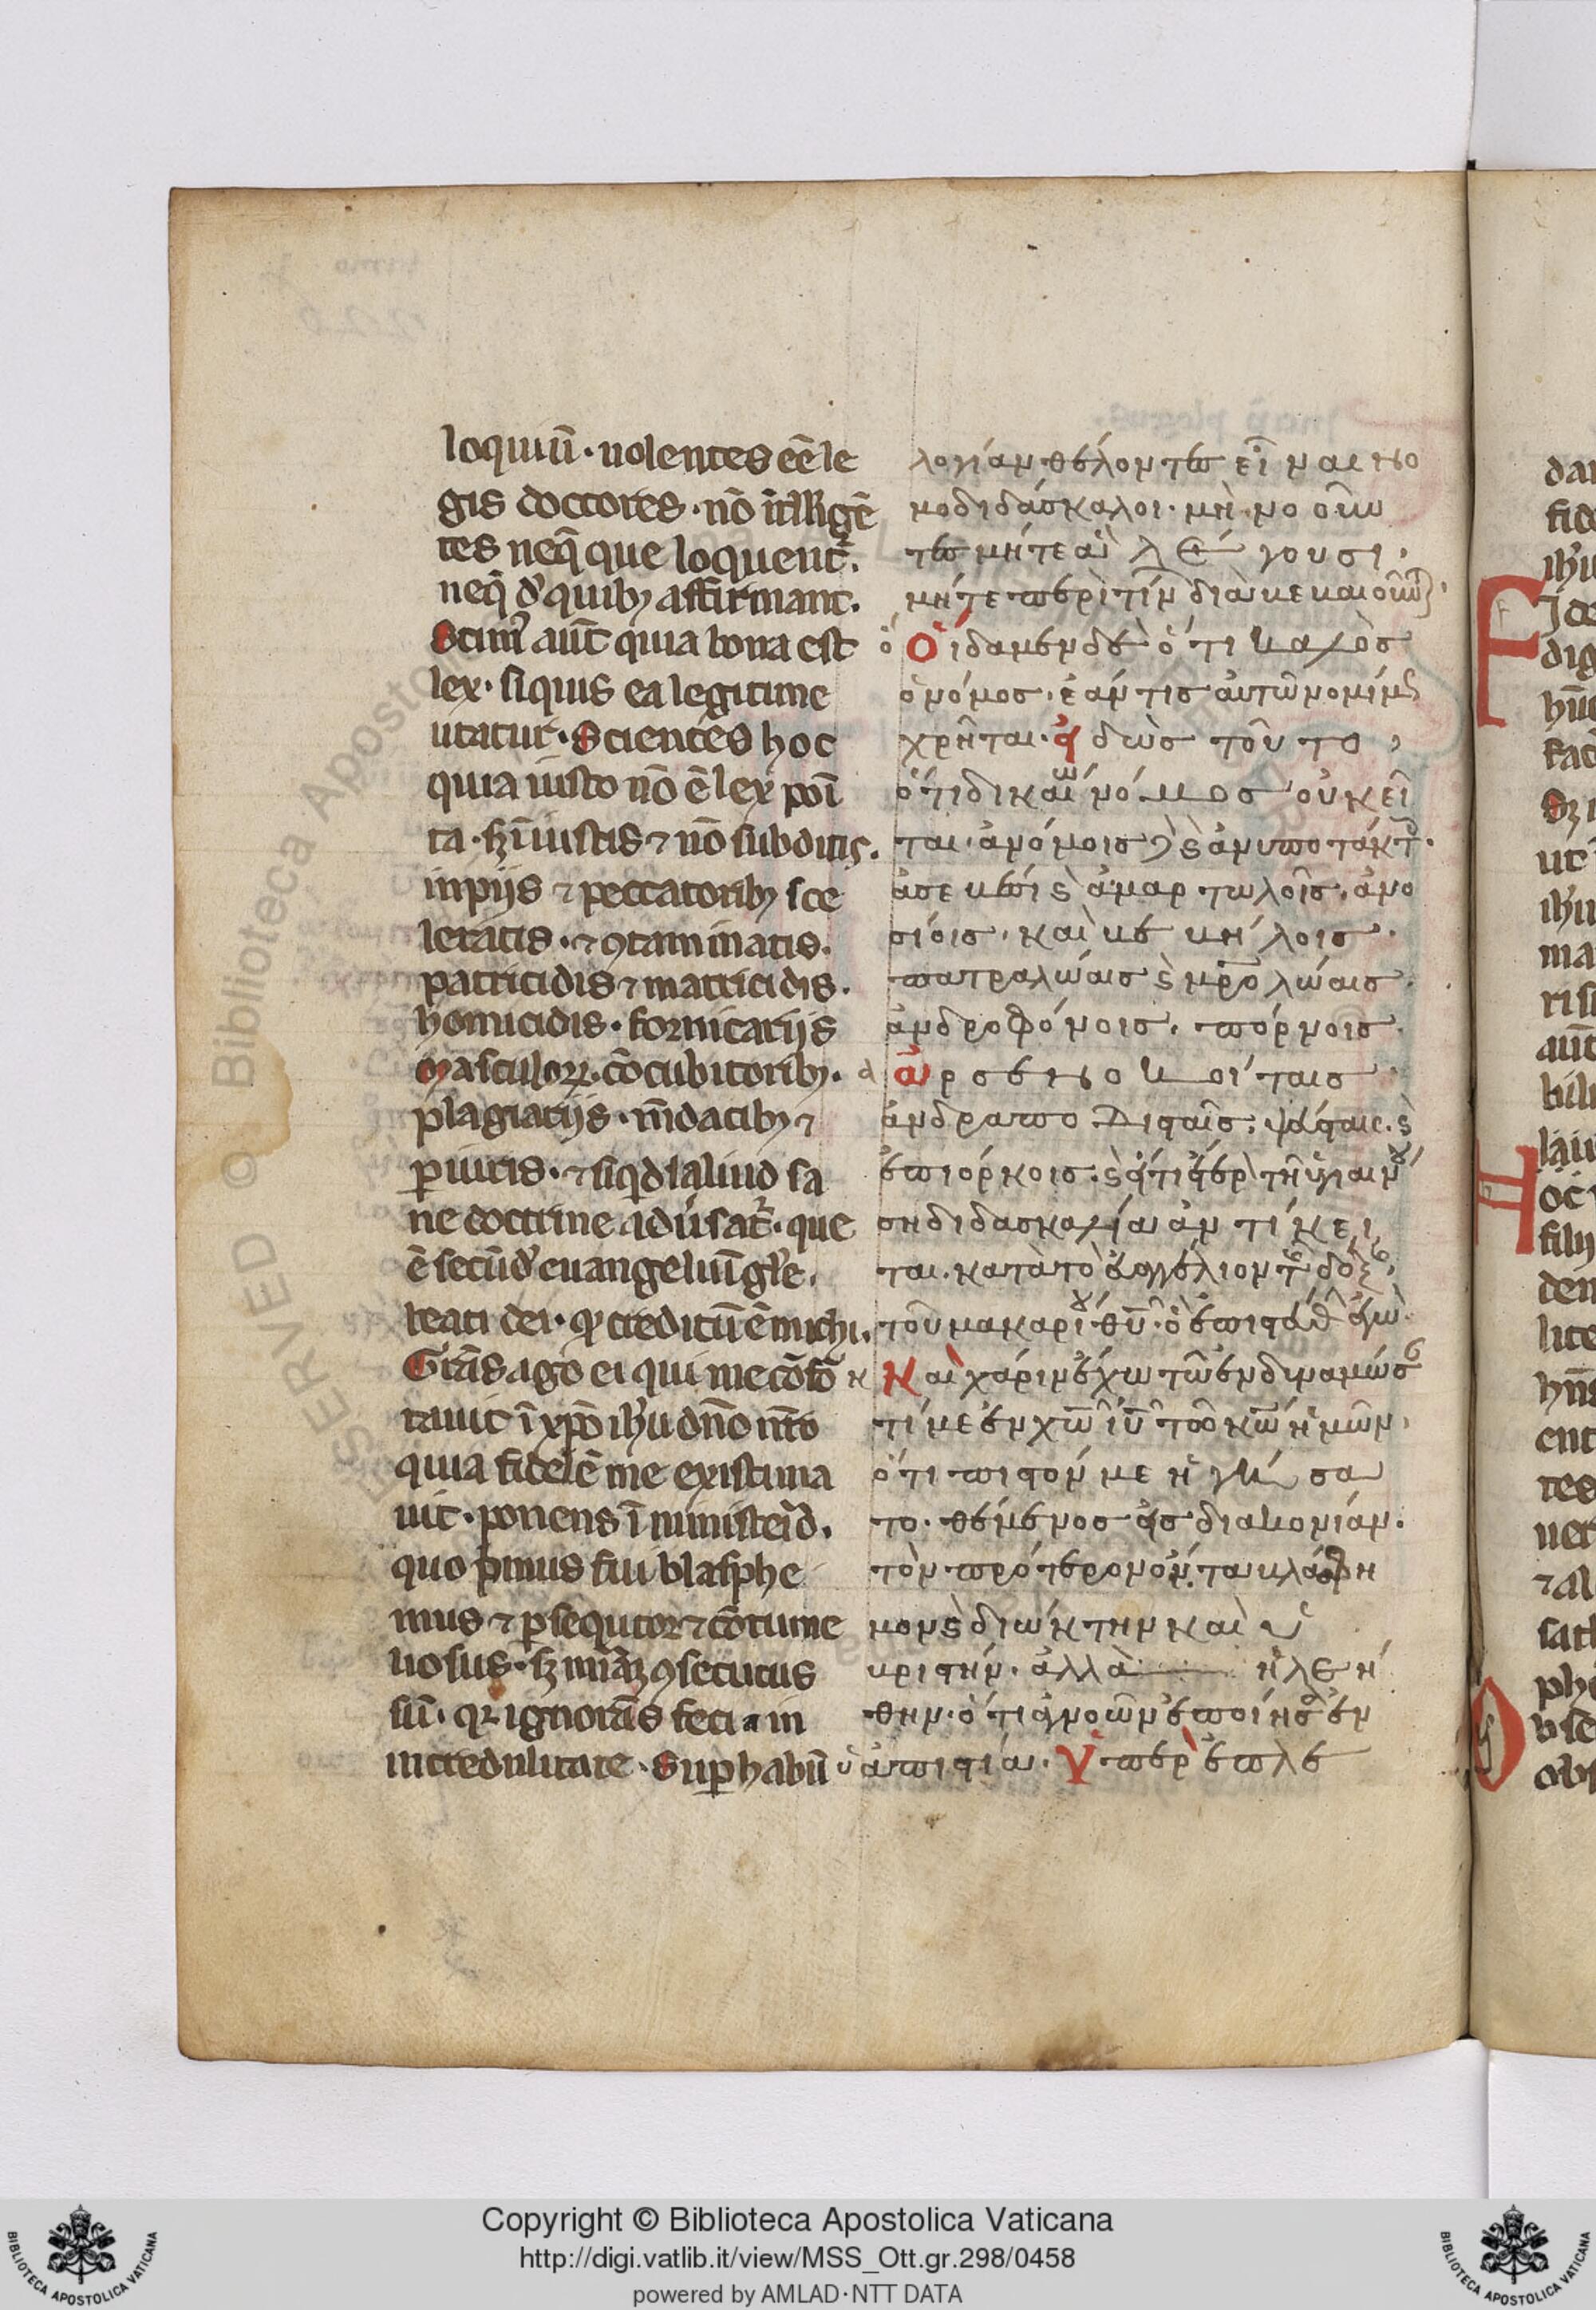 loquiū · uolentes eē le
gis doctores · nō ītꝉꝉigē
tes neq̄ que loquunt᷑.
neq̄ d' quibꝫ affirmant.
Scimꝰ aūt quia bona est
lex · siquis ea legitime
utatur · Scientes hoc
quia iusto nō ē lex poī
ta · sꝫ īiustis ⁊ nō subditis.
inpijs ⁊ peccatoribꝫ sce
leratis · ⁊ ꝯtaminatis.
patricidis ⁊ matricidis.
homicidis · fornicarijs
masculoꝝ · cōcubitoribꝫ.
plagiarijs · mēdacibꝫ ⁊
ꝑiuris · ⁊ siqd aliud sa
ne doctrine aduersat᷑ · que
ē secūd' euangeliū glꝰe.
beati dei · qd creditū ē michi.
Grās ago ei qui me cōfor
tauit ī xp̄o ih'u dn̄o nr̄o
quia fidelē me existima
uit · ponens ī ministerio.
quo prius fui blasphe
mus ⁊ ꝑsequtor ⁊ cōtume
liosus · sꝫ mīaꝫ ꝯsecutus
sū · qꝛ ignorās feci in
incredulitate · Suꝑhabū
λογίαν θέλοντες εἶναι νο
μοδιδάσκαλοι · μὴ νοοῦν
τες μήτε ἃ λέγουσι ·
μήτε περὶ τίνων διαβεβαιοῦνται ·
ὁ Οἴδαμεν δὲ ὅτι καλὸσ
ὁ νόμοσ · ἐάν τισ αὐτῶ νομίμως
χρῆται · εἰδὼσ τοῦτο ,
ὅτι δικαίω νόμοσ οὐ κεῖ
ται · ἀνόμοισ δὲ ϗ ἀνυποτάκτοις ·
ἀσεβέσι ϗ ἁμαρτωλοῖσ · ἀνο
σίοισ · καὶ βεβήλοισ ·
πατραλώαισ ϗ μητρολώαισ ·
ἀνδροφόνοισ · πόρνοισ ·
ἀ ἀρσενοκοίταισ ·
ἀνδραποδισταῖσ · ψεύσταις · ϗ
ἐπιόρκοισ · ϗ εἴ τι ἕτερον τῆ ὑγιαινού
ση διδασκαλία ἀντίκει
ται · κατὰ τὸ εὐαγγέλιον τῆς δόξης ·
τοῦ μακαρίου θῦ · ὃ ἐπιστεύθην ἐγὼ ·
κ Καὶ χάριν ἔχω τῶ ἐνδυναμώσαν
τί με ἐν χῶ ἰῦ τῶ κῶ ἡμῶν ·
ὅτι πιστόν με ἡγήσα
το · θέμενοσ εἰσ διακονίαν ·
τὸν πρότερον ὄντα βλάσφη
μον ϗ διώκτην καὶ ὑ
βριστήν · ἀλλὰ ἠλεή
θην · ὅτι ἀγνοῶν ἐποίησα ἐν
ὑ ἀπιστία · Ὑπερεπλε
Copyright © Biblioteca Apostolica Vaticana
http://digi.vatlib.it/view/MSS_Ott.gr.298/0458
powered by AMLAD·NTT DATA